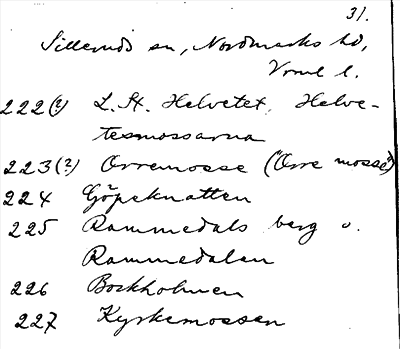 31.
Sillerud sn, Nordmarks hd,
Vrml l.
222(?) L. St. Helvetet, Helve-
tesmossarna
223(?) Orremosse ("Orre mosse")
224 Göpeknatten
225 Rammedals berg o.
Rammedalen
226 Bockholmen
227 Kyrkemossen